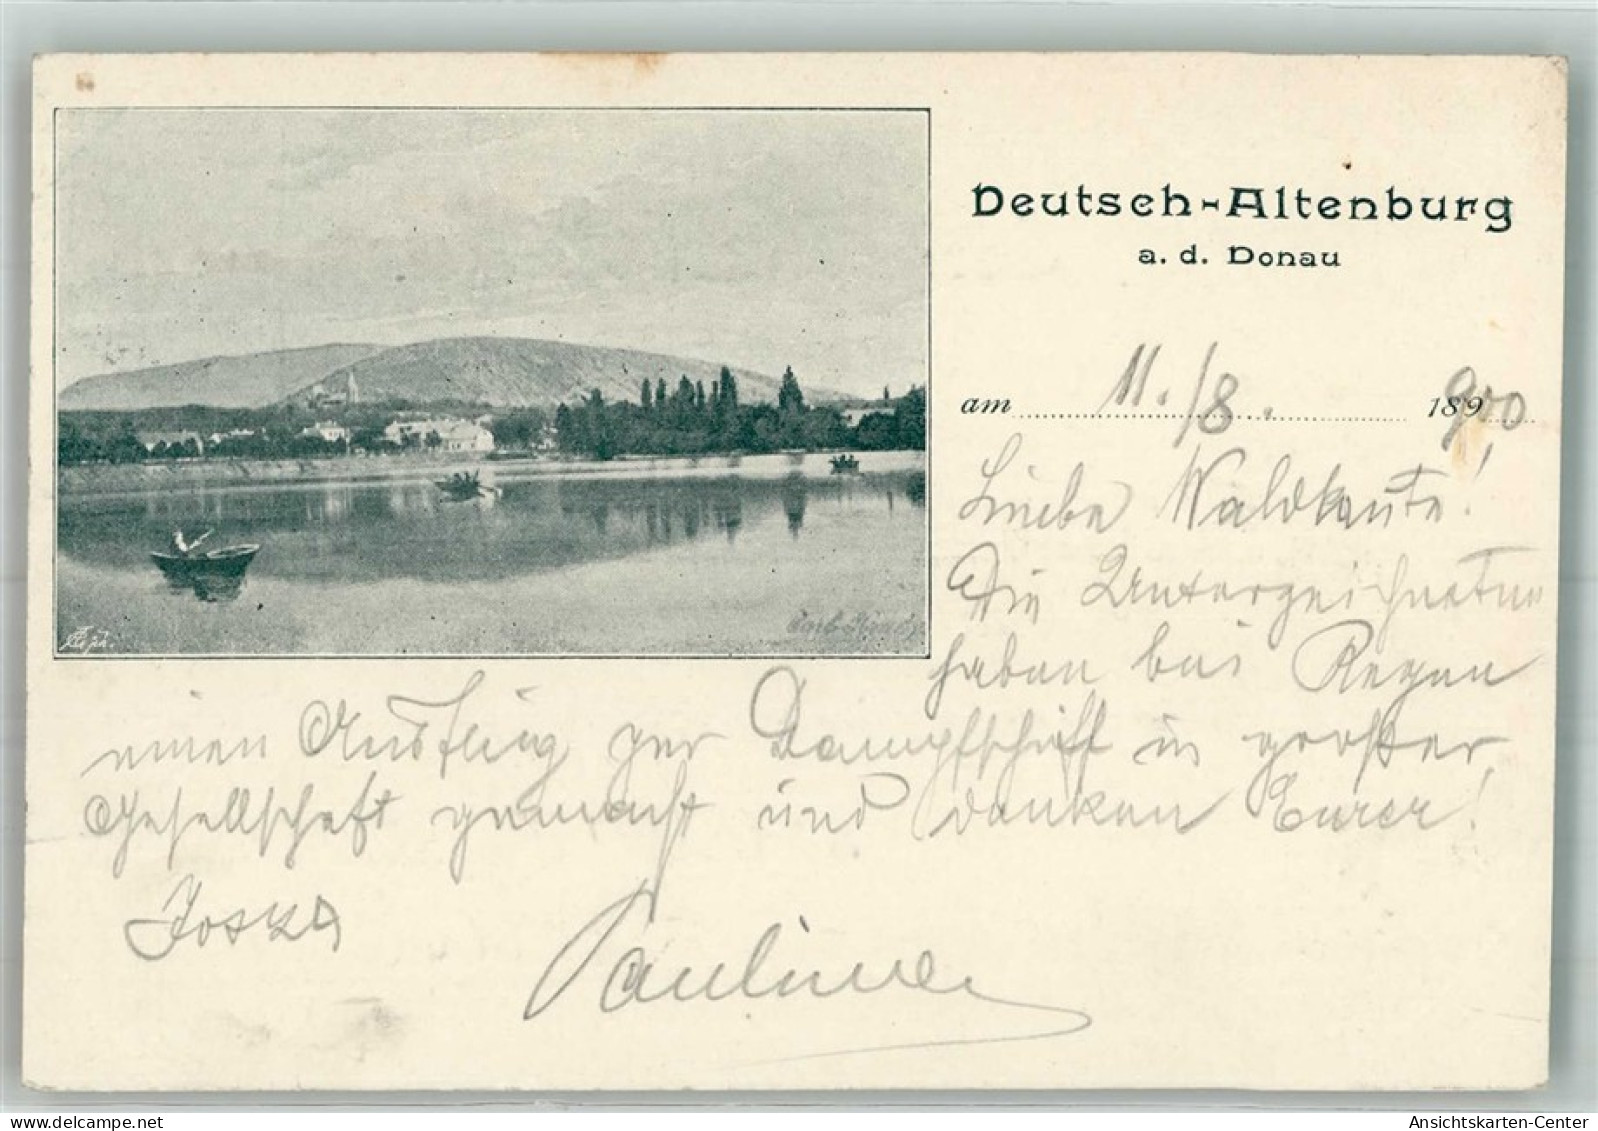 Deutsch-Altenburg
a. d. Donau
am 11./8. 189 900
Liebe Waldleute!
Die Unterzeichneten
haben bei Regen
einen Ausflug per Dampfschiff in großer
Gesellschaft gemacht und danken Eurer!
Joska
Pauline
Ansichtskarten-Center